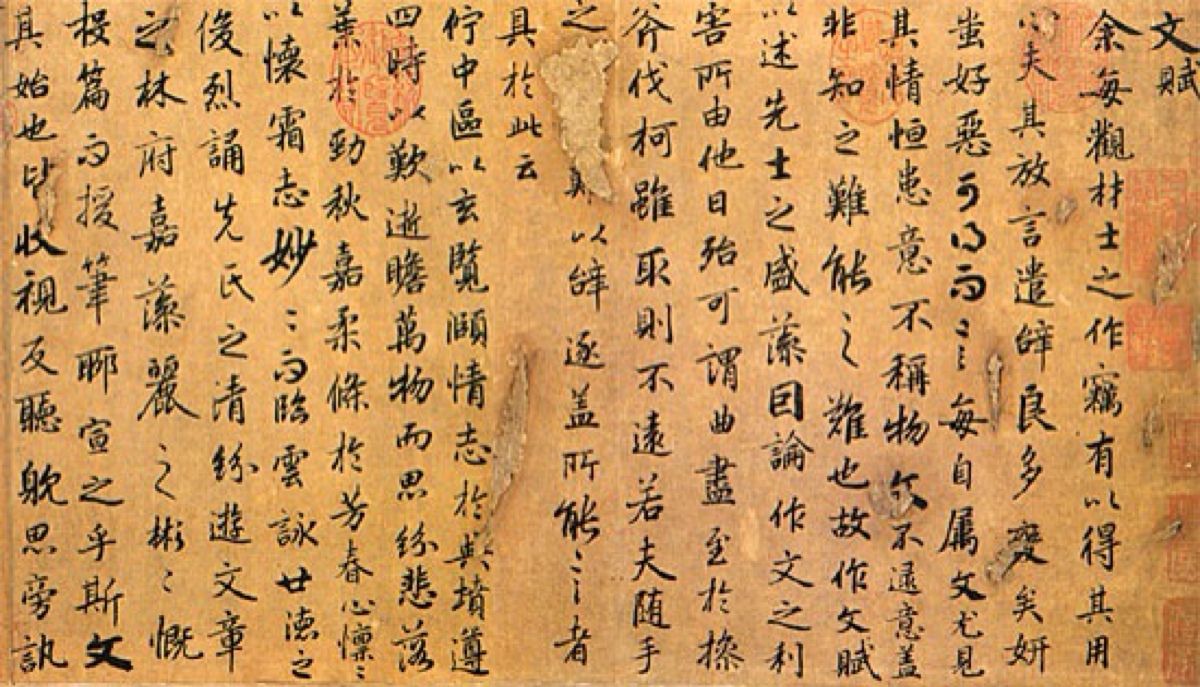 文賦
余每觀材士之作竊有以得其用
心夫其放言遣辝良多變矣妍
蚩好惡可得而言每自属文尤見
其情恒患意不稱物文不逮意盖
非知之難能之難也故作文賦
以述先士之盛藻因論作文之利
害所由他日殆可謂曲盡至於操
斧伐柯雖取則不遠若夫随手
之難以辝逐盖所能言者
具於此云
佇中區以玄覽頤情志於典墳遵
四時以歎逝瞻萬物而思紛悲落
葉於勁秋嘉柔條於芳春心懍〻
以懷霜志妙〻而臨雲詠世德之
俊烈誦先民之清紛遊文章
之林府嘉藻麗之彬〻慨
投篇而援筆聊宣之乎斯文
其始也皆收視反聽躭思旁訊